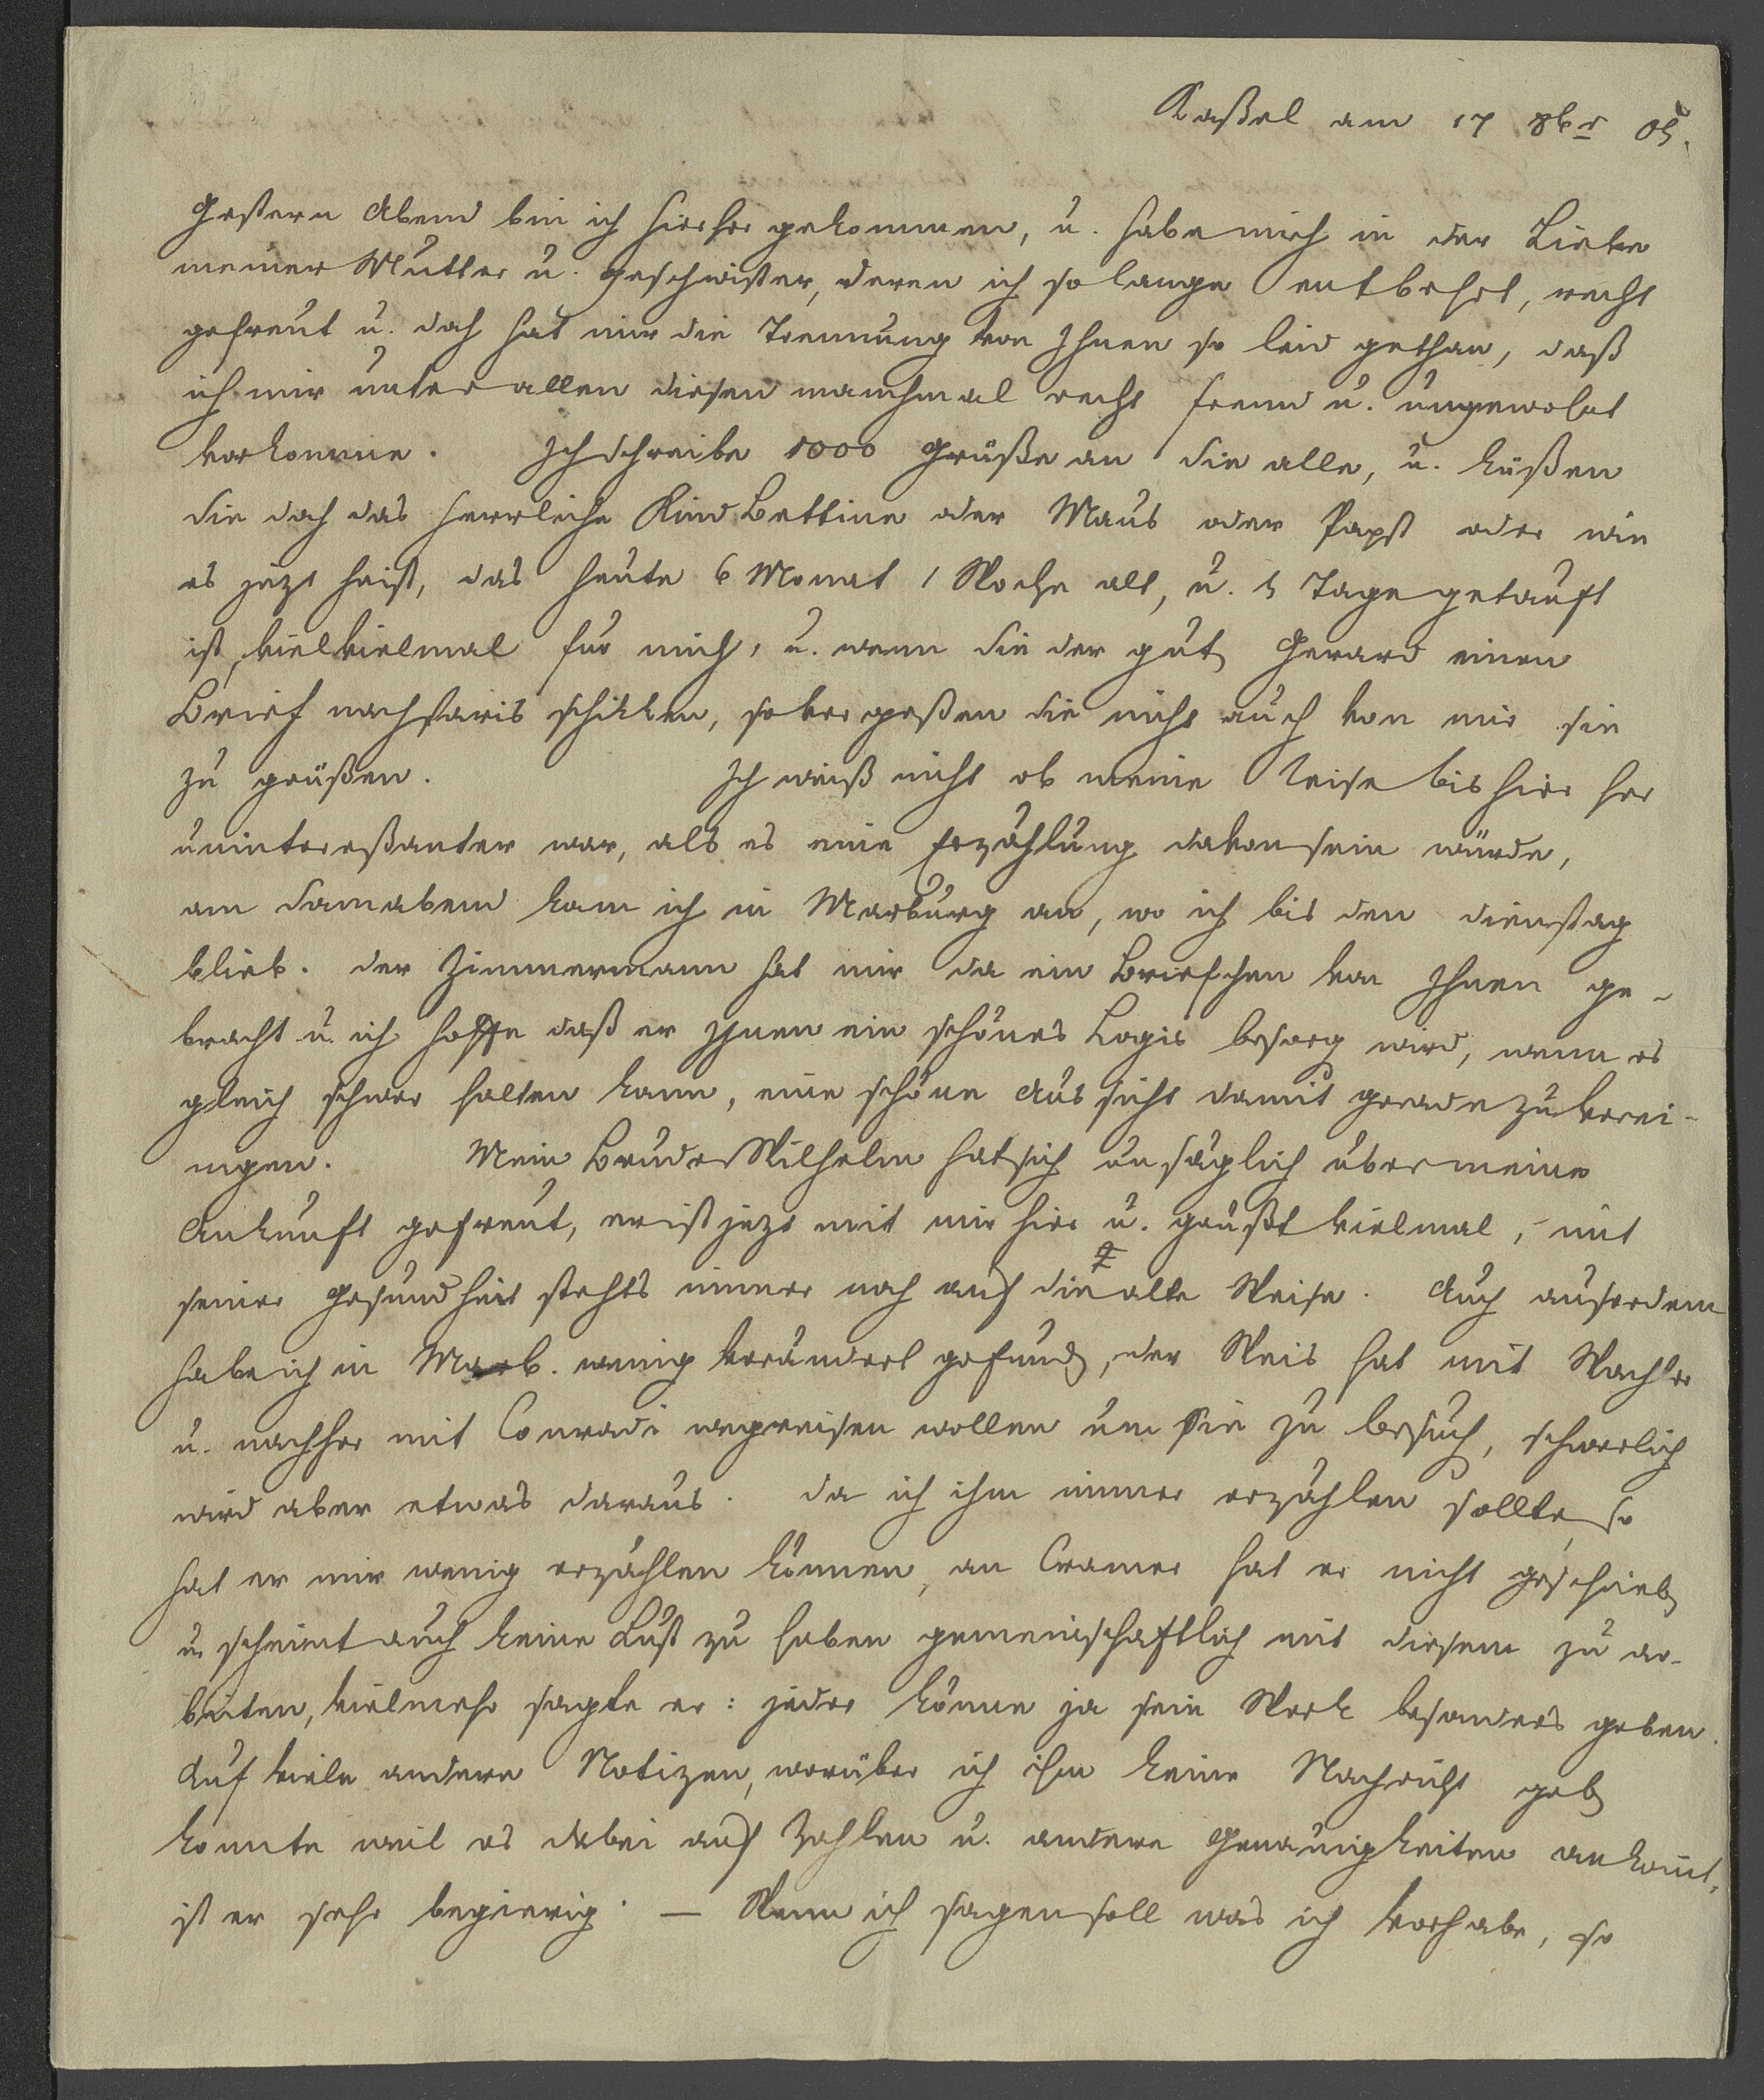 Kaßel am 17 8br 05.
Gestern Abend bin ich hierher gekommen, u. habe mich in der Liebe
meiner Mutter u. Geschwister, deren ich so lange entbehrt, recht
gefreut u. doch hat mir die Trennung von Ihnen so leid gethan, daß
ich mir unter allen diesen manchmal recht fremd u. ungewohnt
vorkomme. Ich schreibe 1000 Grüße an Sie alle, u. küßen
Sie doch das herrliche Kind Bettine oder Maus oder Papst oder wie
es jezt heist, das heute 6 Monat 1 Woche alt, u. 5 Tage getauft
ist, vielvielmal für mich, u. wenn Sie der guten Gerard einen
Brief nach Paris schikken, so vergeßen Sie nicht auch von mir sie
zu grüßen. Ich weiß nicht ob meine Reise bis hier her
unintereßanter war, als es eine Erzählung davon sein würde,
am Sonnabend kam ich in Marburg an, wo ich bis den Dienstag
blieb. der Zimmermann hat mir da ein Briefchen von Ihnen ge-
bracht u. ich hoffe daß er Ihnen ein schönes Logis besorg wird, wenn es
gleich schwer halten kann, eine schöne Aussicht damit gerade zu verei-
nigen. Mein Bruder Wilhelm hat sich unsäglich über meine
Ankunft gefreut, er ist jezt mit mir hier u. grüßt vielmal, mit
seiner Gesundheit stehts immer noch auf die alte Weise. Auch auserdem
habe ich in Marb. wenig verändert gefunden, der Weis hat mit Wachler
u. nachher mit Conradi wegreisen wollen um Sie zu besuchen, schwerlich
wird aber etwas daraus. da ich ihm immer erzählen sollte, so
hat er mir wenig erzählen können, an Cramer hat er nicht geschrieben
u. scheint auch keine Lust zu haben gemeinschaftlich mit diesem zu ar-
beiten, vielmehr sagte er: jeder könne ja sein Werk besonders geben.
Auf viele andere Notizen, worüber ich ihm keine Nachricht geben
konnte weil es dabei auf Zahlen u. andere Genauigkeiten ankomt,
ist er sehr begierig. — Wenn ich sagen soll was ich vorhabe, so